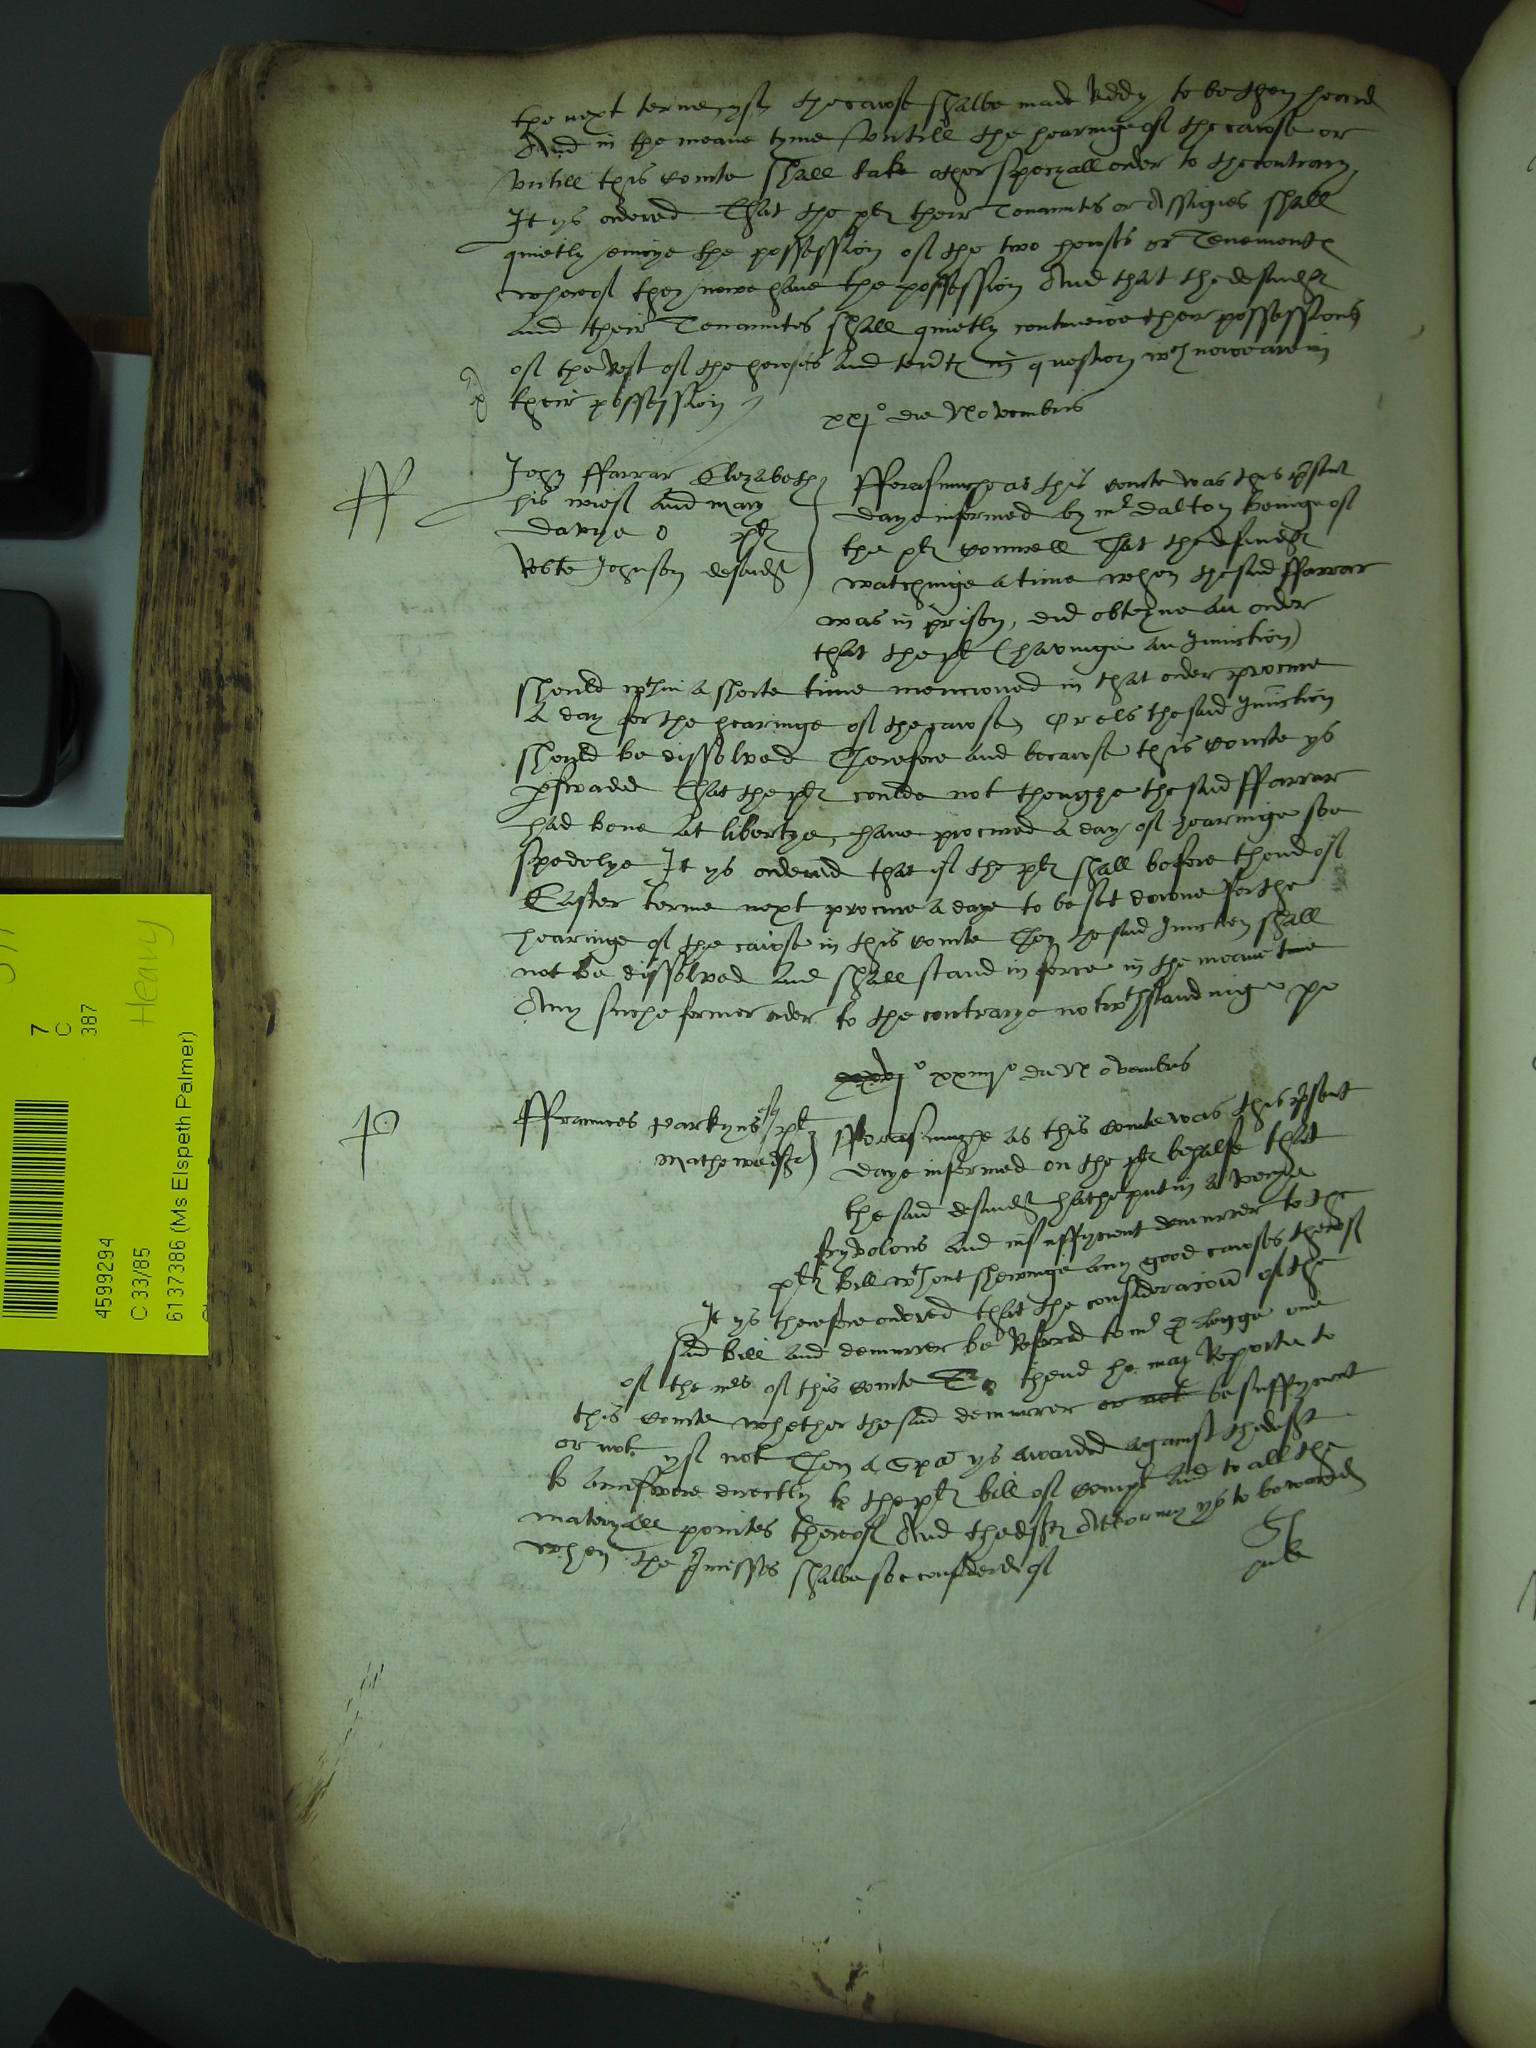 the next terme, yf the cawse shalbe made Reddy to be then heard
And in the meane tyme Untill the hearinge of the cawse or
Untill this courte shall take other specyall order to the contrary,
It ys ordered That the plt their Tenauntes or Assignes shall
quietly enioye the possession of the two howses or Tenementes
whereof they nowe have the possession And that the defendt
and their Tenauntes shall quietly contynewe their possessions
of the Rest of the howses and tentes in question wch nowe are in
their possession
xxjo die Novembris
ff
John ffarrar Elezabethe
his wief and mary
davye plt
Robte Johnson defendt
fforasmuche as this courte was this psent
daye informed by mr dalton beinge of
the plt councell That the defendt
watchinge a time when the said ffarrar
was in prison, did obteyne an order
that the plt (havinge an Iniunction)
should wthin a shorte time mencioned in that order procure
a day for the hearinge of the cawse, Or els the said Iniunction
should be dissolved Therefore and becawse this courte ys
pswaded That the plt coulde not thoughe the said ffarrar
had bene at libertye, have procured a day of hearinge soe
spedelye It ys ordered that if the plt shall before thend of
Easter terme next procure a daye to be set downe for the
hearinge of the cawse in this courte Then the said Iniunction shall
not be dissolved and shall stand in force in the meane time
Any suche former order to the contrarye notwthstandinge
xxiiijo die Novembris
P
ffraunces Parkyns plt
Mathewe deft
fforasmuche as this courte was this psent
daye informed on the plt behalfe that
the said defendt hathe put in a verye
fryvolous and insuffycient demurrer to the
plt bill wthout shewinge any good cawses thereof
It ys therefore ordered that the consideracion of the
said bill and demurrer be Referred to mr D Legge one
of the mrs of this courte To thend he may Reporte to
this courte whether the said demurrer or not be suffycient
or not yf not Then a Spa ys awarded against the deft
to answere directly to the plt bill of complt And to all the
materyall pointes thereof And the deft Attorney ys to be warned
when the pmisses shalbe soe considered of
7
C
387
Heavy
4599294
C 33/85
6137386 (Ms Elspeth Palmer)